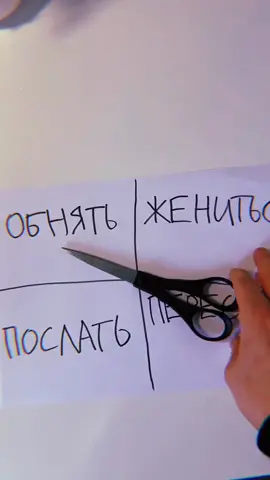 ОБНЯТЬ
ЖЕНИТЬС
ПОСЛАТЬ